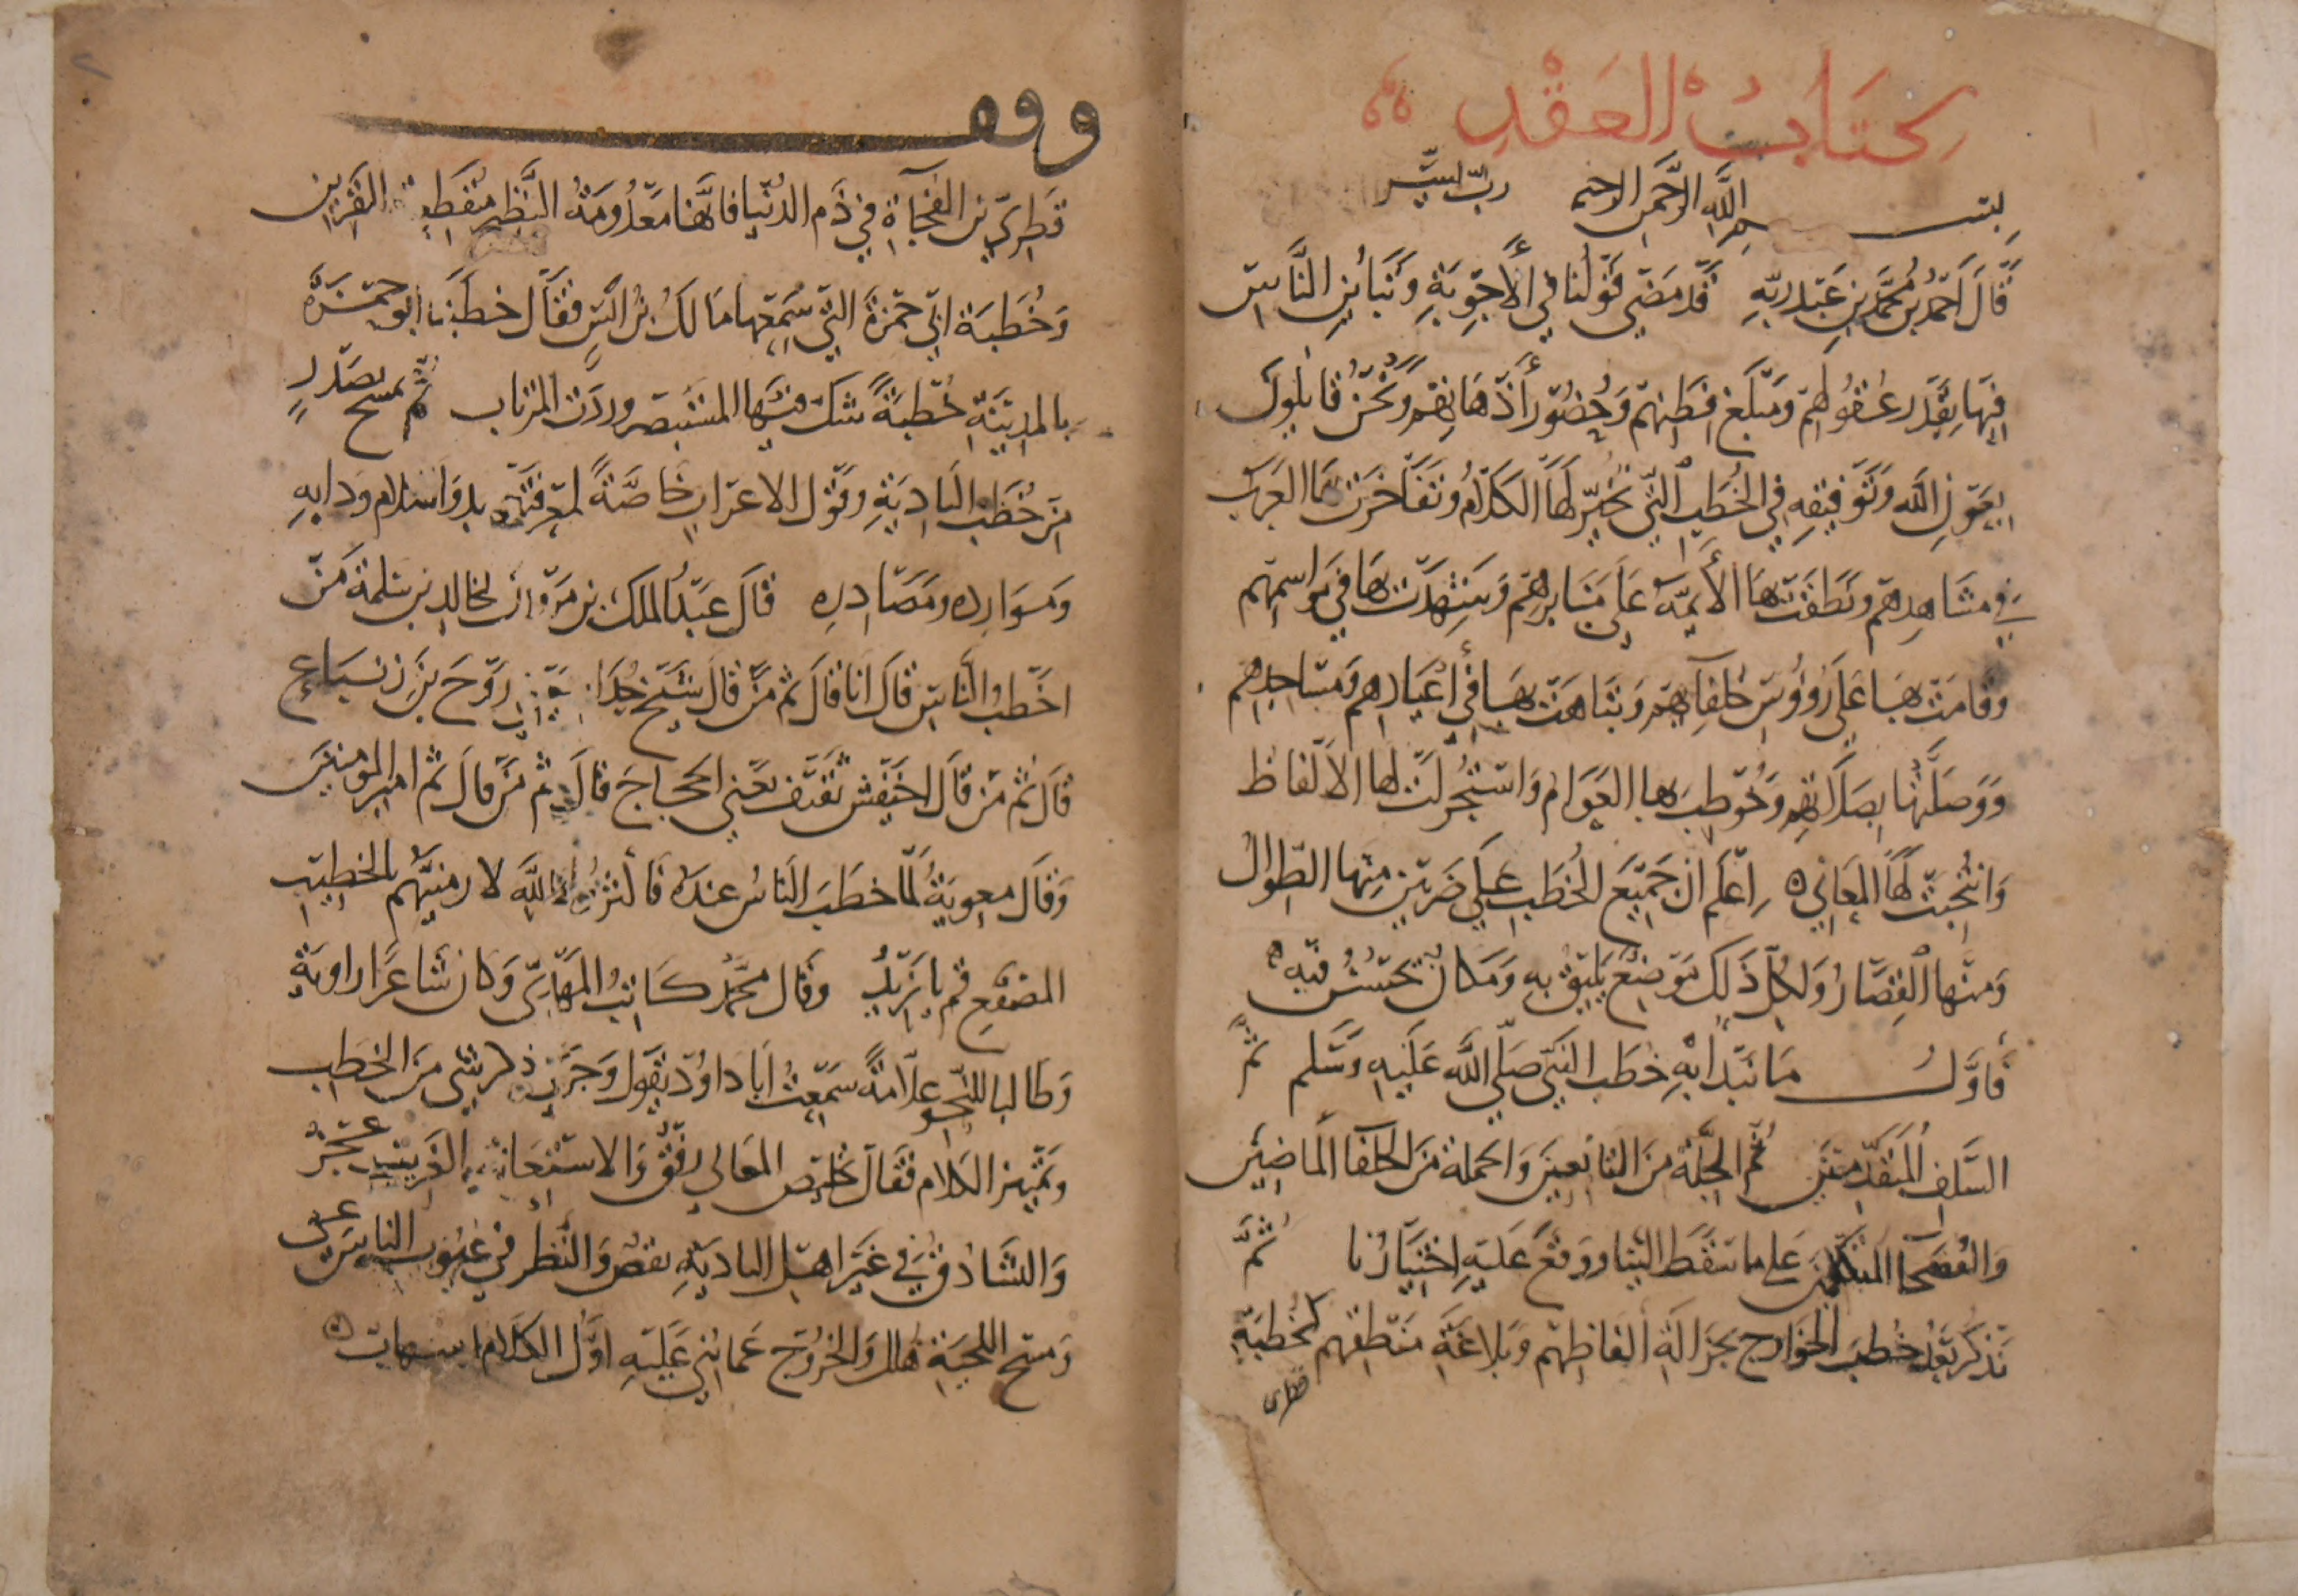 كتاب العقد
بسم الله الرحمن الرحيم رب يسر
قال احمد بن محمد بن عبد ربه قد مضى قولنا في الأجوبة وتباين الناس
فيها بقدر عقولهم ومبلغ فطنهم وحضور أذهانهم ونحن قايلون
بعون الله وتوفيقه في الخطب التي تخير لها الكلام وتفاخرت بها العرب
في مشاهدهم ونطقت بها الأيمة على منابرهم وشهرت بها في مواسمهم
وقامت بها على رؤوس خلفآيهم وتباهت بها في أعيادهم ومساجدهم
ووصلتها بصلاتهم وخوطب بها العوام واستجزلت لها الالفاظ
وانتخبت لها المعاني اعلم ان جميع الخطب على ضربين منها الطوال
ومنها القصار ولكل ذلك موضع يليق به ومكان يحسن فيه
فأول ما نبدا به خطب النبي صلى الله عليه وسلم ثم
السلف المتقدمين ثم الجلة من التابعين والجملة من الخلفا الماضين
والفصحا المتكلمين على ما سقط الينا ووقع عليه اختيارنا ثم
نذكر بعد خطب الخوارج بجزالة ألفاظهم وبلاغة منطقهم كخطبة
قطري
وقف
قطري بن الفجآة في ذم الدنيا فانها معدومة النظير منقطعة القرين
وخطبة ابي حمزة التي سمعها مالك بن انس فقال خطبنا ابو حمزة
بالمدينة خطبة شك فيها المستبصر وردت المرتاب ثم نسمح بصدر
من خطب البادية وقول الاعراب خاصة لمعرفتهم بدوا الكلام ودايه
وموارده ومصادره قال عبد الملك بن مروان لخالد بن سلمة من
اخطب الناس قال انا قال ثم من قال شيخ جذام يعني روح بن زنباع
قال ثم من قال اخيفش ثقيف يعني الحجاج قال ثم من قال ثم امير المومنين
وقال معوية لما خطب الناس عنده فأكثروا والله لا رمينهم بالخطيب
المصقع قم يا يزيد وقال محمد كاتب المهدي وكان شاعرا راوية
وطالبا للنحو علامة سمعت ابا داود يقول وجرى ذكر شي من الخطب
وتمييز الكلام فقال تلخيص المعاني رفق والاستعانة بالغريب عجز
والتشادق في غير اهل البادية نقص والنظر في عيون الناس عي
ومسح اللحية هلك والخروج عما بني عليه اول الكلام اسهاب